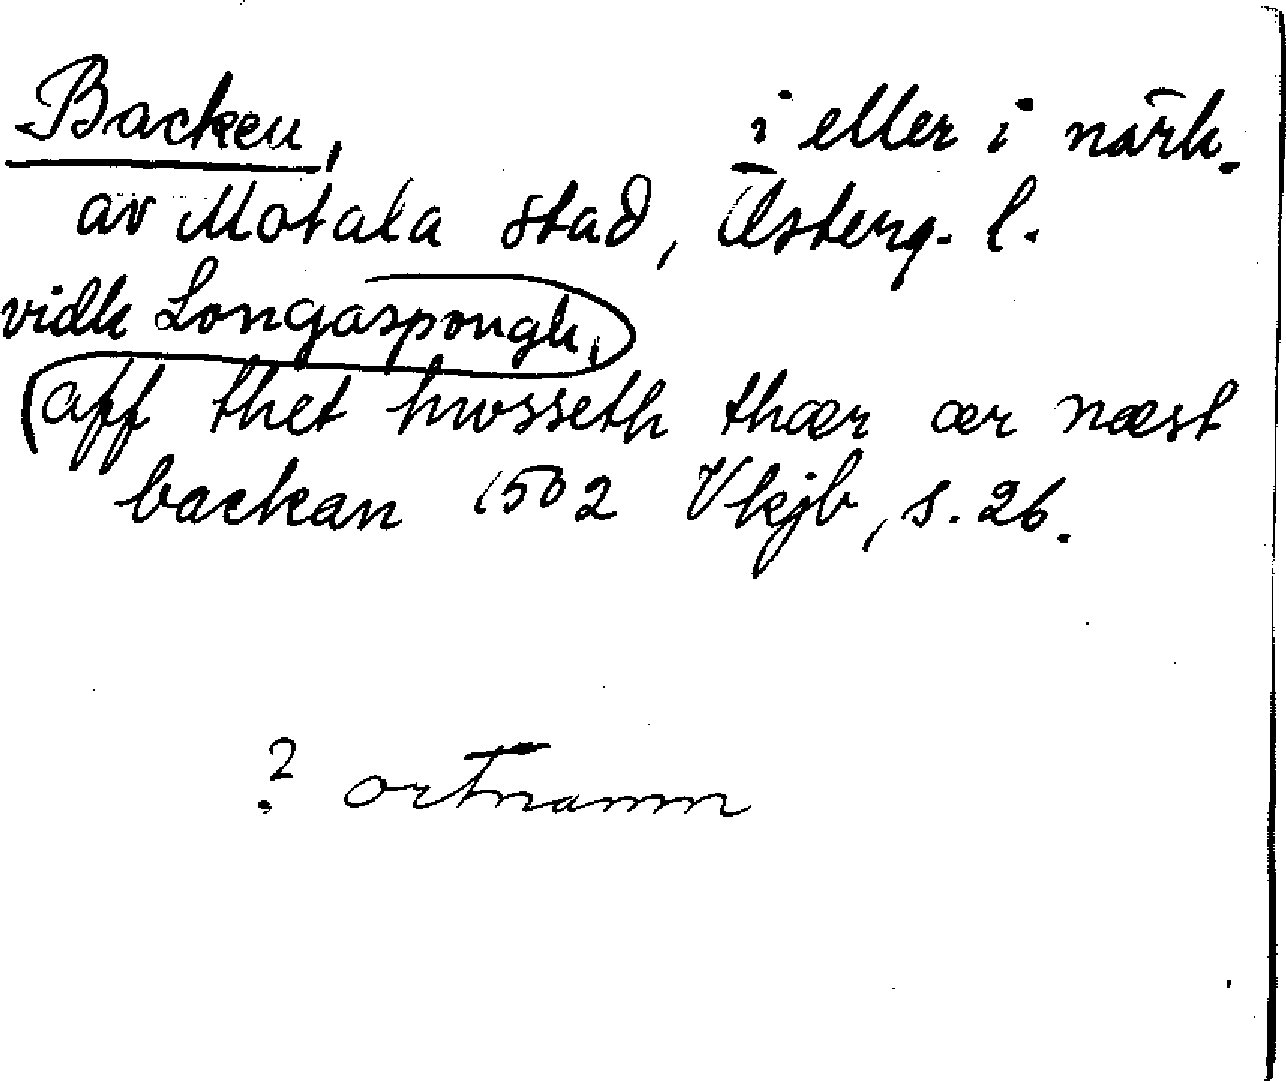 Backen, i eller i närh.
av Motala stad, Österg. l.
vidh Longaspongh,
(aff thet hwsseth thær ær næst
backan 1502 Vkjb, s. 26.
? ortnamn